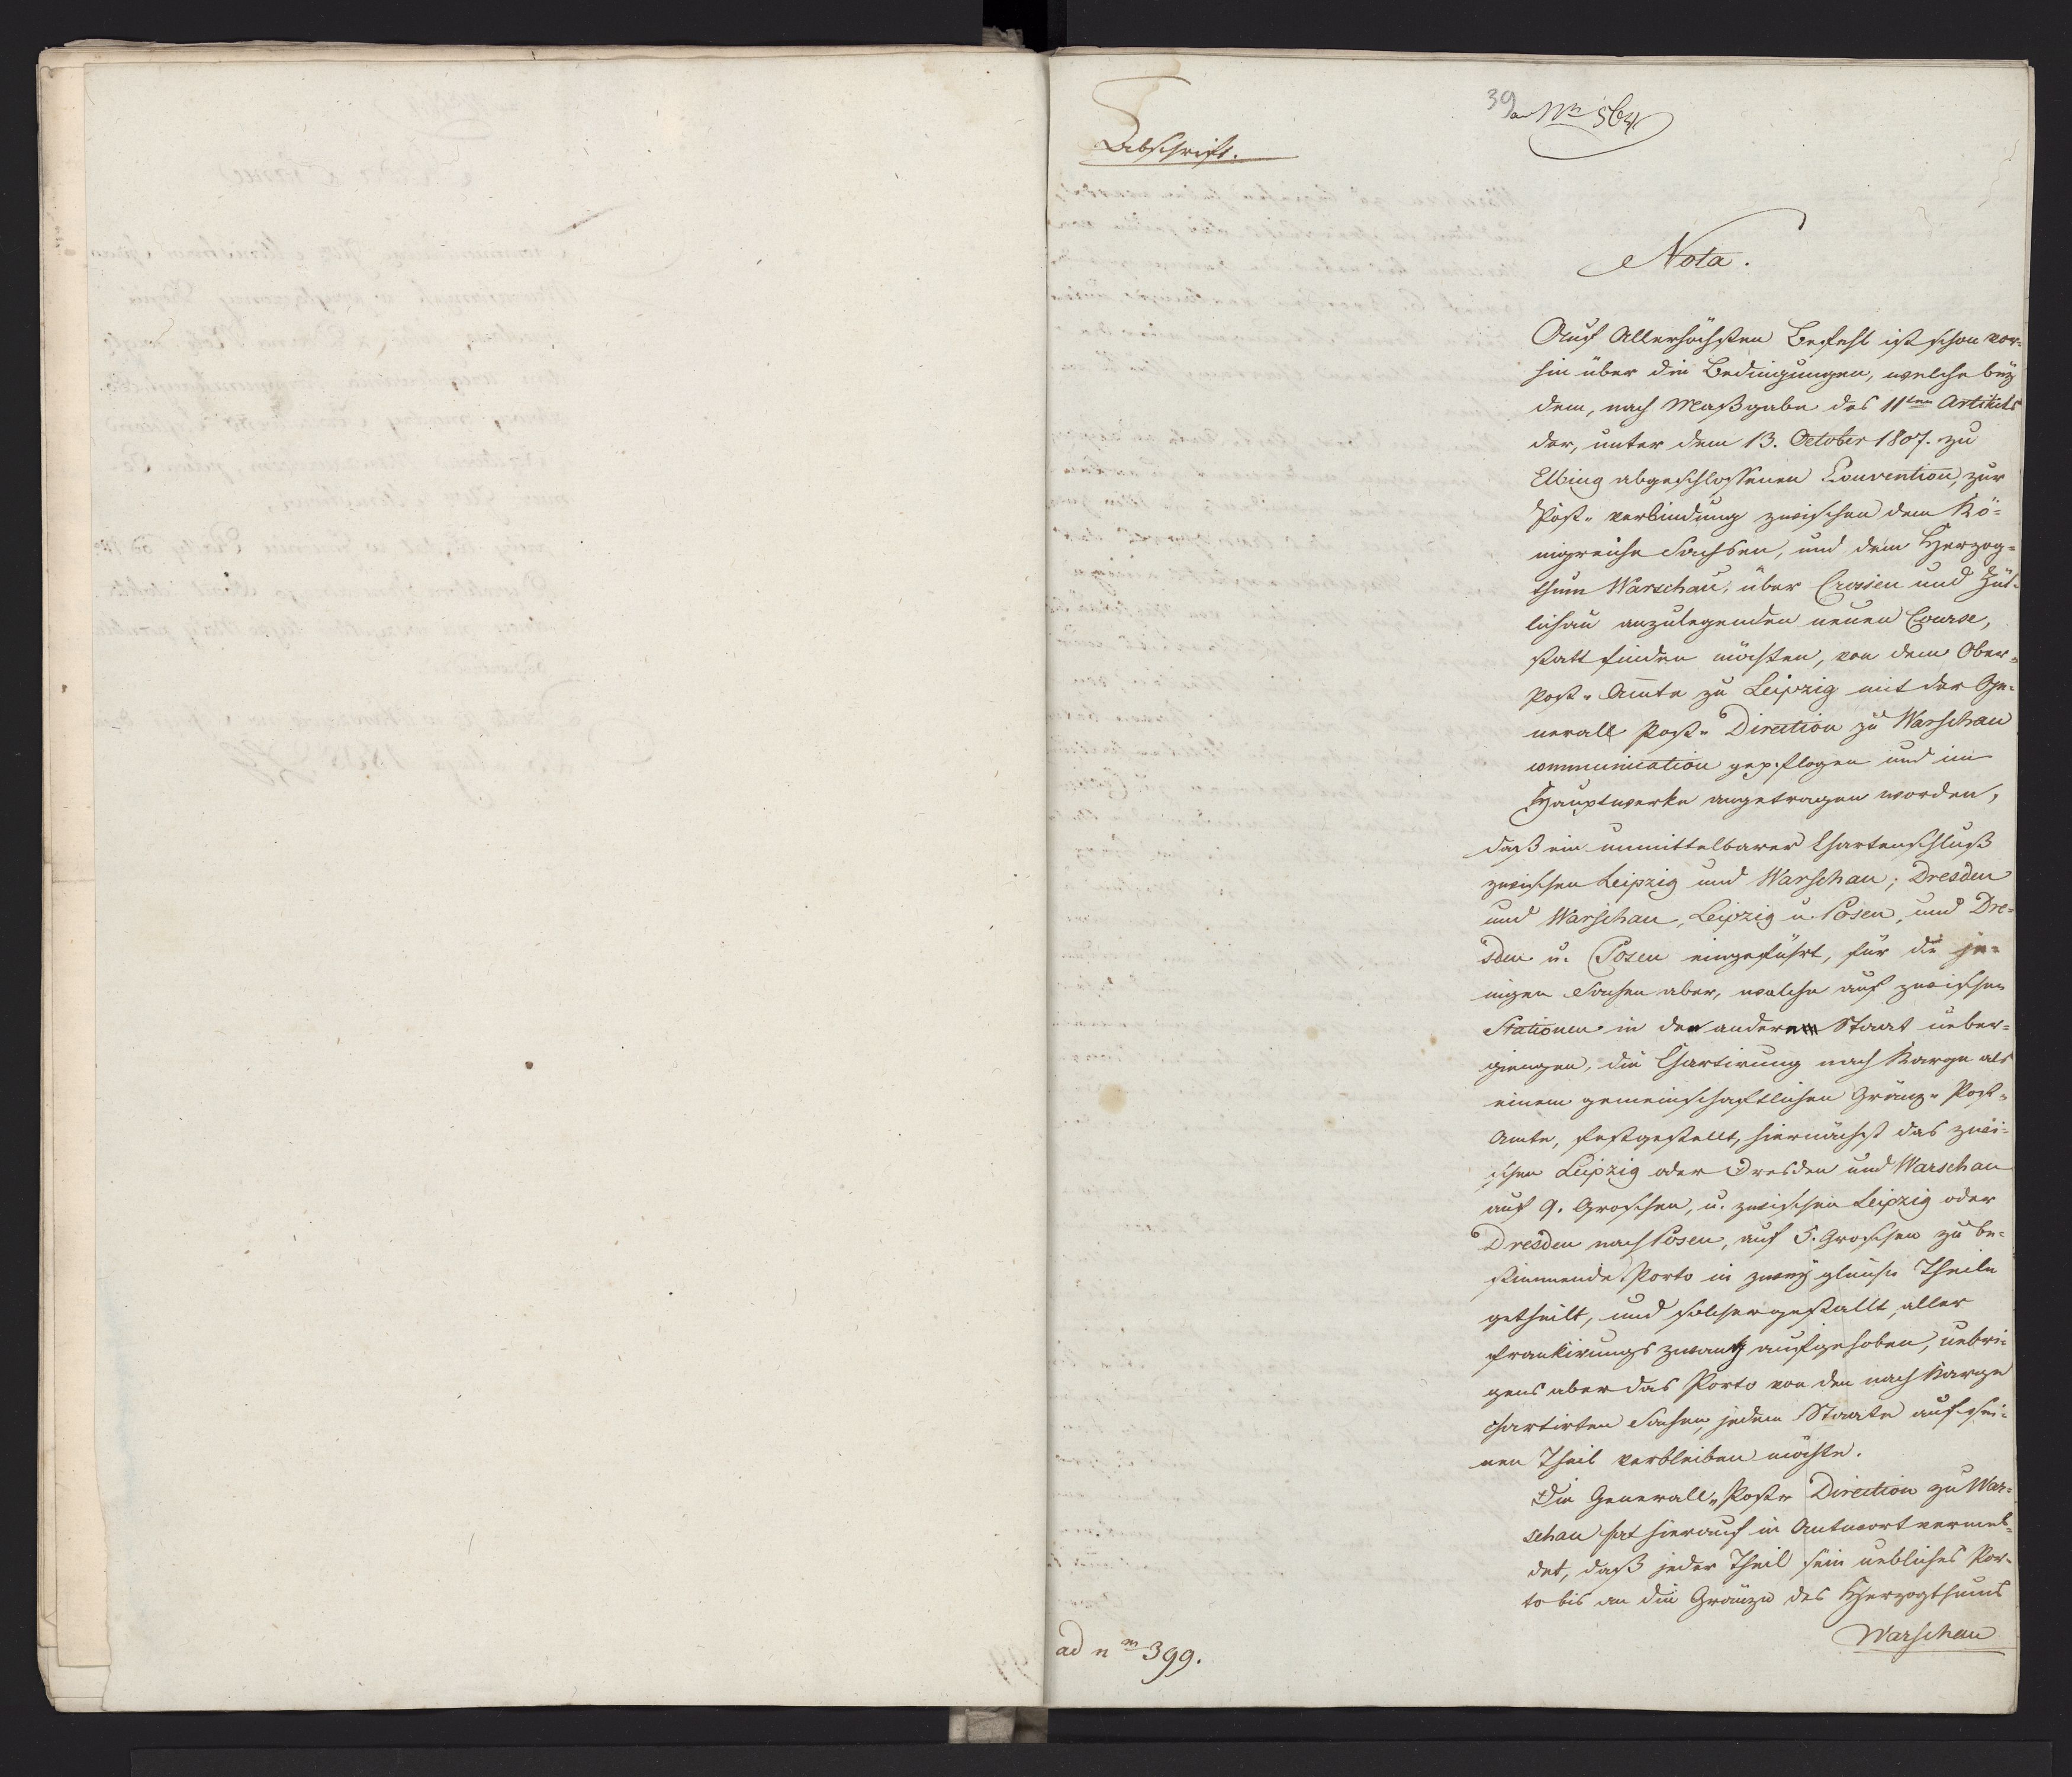 39
ad Nr 564
Abschrift.
Nota.
Auf Allerhöchsten Befehl ist schon vor-
hin über die Bedingungen, welche beÿ
dem, nach Maßgabe des 11ten Artikels
der, unter dem 13. October 1807. zu
Elbing abgeschlossenen Convention, zur
Post-verbindung zwischen dem Kö-
nigreiche Sachsen, und dem Herzog-
thum Warschau, über Crossen und Zül-
lichau anzulegenden neuen Course,
statt finden möchten, von dem Ober-
Post-Amte zu Leipzig mit der Ge-
nerall Post-Direction zu Warschau
communication gepflogen und im
Hauptwerke angetragen worden,
daß ein unmittelbarer Chartenschluß
zwischen Leipzig und Warschau; Dresden
und Warschau, Leipzig u. Posen, und Dre-
sden u. Posen eingeführt, für die je-
nigen Sachen aber, welche auf zwischen
Stationen in den andern Staat ueber-
giengen, die Chartirung nach Karge als
einem gemeinschaftlichen Gränz-Post-
Amte, festgestellt, hiernächst das zwi-
schen Leipzig oder Dresden und Warschau
auf 9. Groschen, u. zwischen Leipzig oder
Dresden nach Posen, auf 5. Groschen zu be-
stimmende Porto in zweÿ gleiche Theile
getheilt, und solchergestallt, aller
frankirungs zwang aufgehoben, uebri-
gens aber das Porto von den nach Karge
chartirten Sachen, jedem Staate auf sei-
nen Theil verbleiben möchte.
Die Generall-Post-Direction zu War-
schau hat hierauf in Antwort vermel-
det, daß jeder Theil sein uebliches Por-
to bis an die Gränze des Herzogthums
Warschau
ad nm 399.